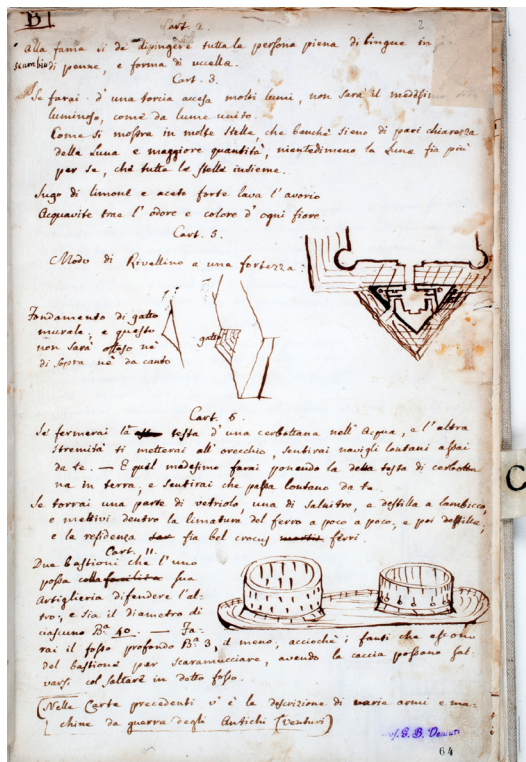 B
Cart. 2.
2
alla fama si de' dipingere tutta la persona piena di lingue in
scambio di penne, e forma di uccello.
Cart. 3.
Se farai d'una torcia accesa molti lumi, non sarà il medesimo
luminoso, come da lume unito.
Come si mostra in molte stelle, che benchè sieno di pari chiarezza
della Luna e maggiore quantità, nientedimeno la Luna fia più
per se, che tutte le stelle insieme.
Sugo di limone e aceto forte lava l'avorio
Acquavite trae l'odore e colore d'ogni fiore.
Cart. 5.
Modo di Rivellino a una fortezza:
Fondamento di gatto
murale, e questo
non sarà offeso nè
di sopra nè da canto
gatto
Cart. 6.
Se fermerai la testa d'una cerbottana nell'Acqua, e l'altra
stremità ti metterai all'orecchio, sentirai navigli lontani assai
da te. — E quel medesimo farai ponendo la detta testa di cerbotta
na in terra, e sentirai che passa lontano da te.
Se torrai una parte di vetriolo, una di salnitro, e destilla a lambicco,
e mettivi dentro la limatura del ferro a poco a poco, e poi destilla,
e la residenza fia bel crocus martis ferri.
Cart. 11.
Due bastioni che l'uno
possa colla facilità sua
Artiglieria difendere l'al-
tro, e sia il diametro di
ciascuno Bᵃ 40. — Fa-
rai il fosso profondo Bᵃ 3, il meno, acciochè i fanti che escono
del bastione per scaramucciare, avendo la caccia possano sal-
varsi col saltare in detto fosso.
(Nelle Carte precedenti v'è la descrizione di varie armi e ma-
chine da guerra degli Antichi (Venturi)
G. B. Venturi
64
C